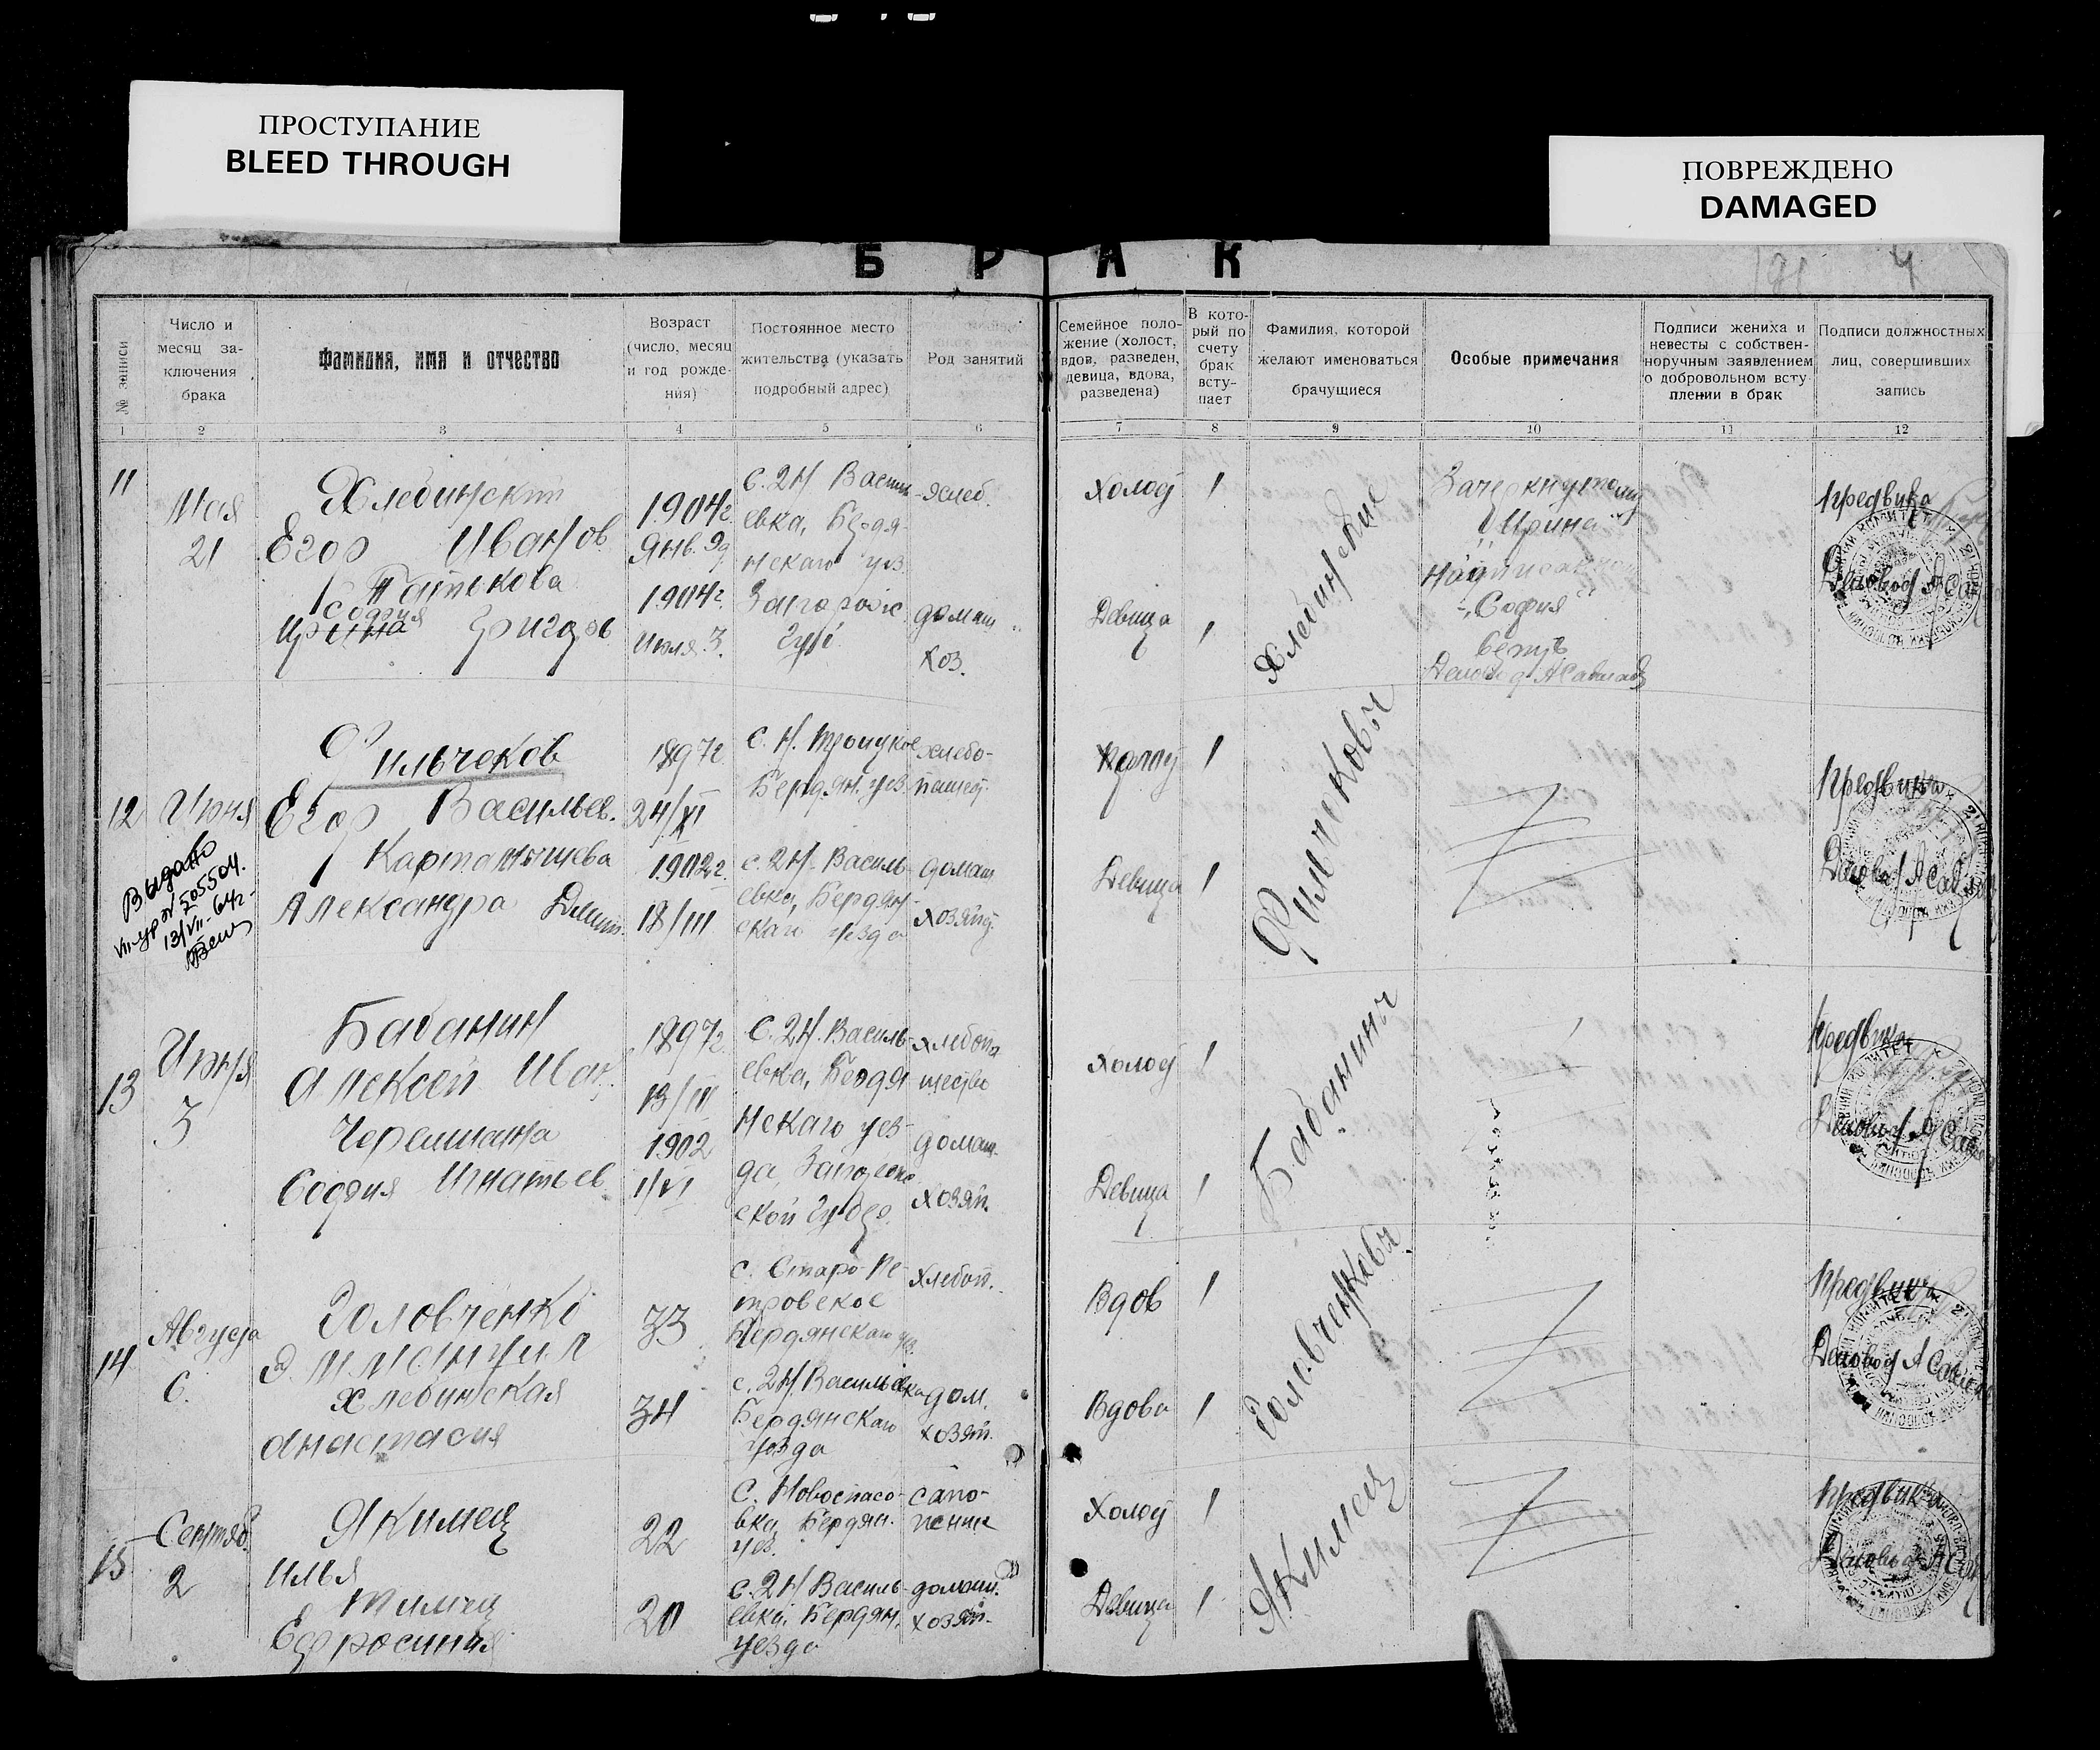 ПРОСТУПАНИЕ
BLEED THROUGH
ПОВРЕЖДЕНО
DAMAGED
БРАК
191 4
№ записи
Число и месяц заключения брака
Фамилия, имя и отчество
Возраст (число, месяц и год рождения)
Постоянное место жительства (указать подробный адрес)
Род занятий
Семейное положение (холост, вдов, разведен, девица, вдова, разведена)
В который по счету брак вступает
Фамилия, которой желают именоваться брачущиеся
Особые примечания
Подписи жениха и невесты с собственноручным заявлением о добровольном вступлении в брак
Подписи должностных лиц, совершивших запись
1 2 3 4 5 6 7 8 9 10 11 12
11
Мая
21
Хлебинский
Егор Иванов.
София
Ирина Григор
1904г.
Янв. 9д
1904г.
Июля 3.
с. 2 Н Васил
евка, Бердя
нскаго уез
Запорожс.
Губ.
хлеб.
домаш
хоз.
Холос
1
Девица
1
Хлебинские
Зачеркнутому
"Ирина"
"София"
верить
Предвика
12
Июня
Выдано
VII-ур № 505504.
13/VII-64г-
Фильчеков
Егор Васильев.
Александра Дмит.
1897г.
24/XI
1902г.
18/III
с. Н. Троицкое
Бердян. уез.
с. 2 Н. Василь-
евка, Бердян-
скаго уезда
хлебо-
пашец.
домаш
хозяйс.
1
Девица
1
Фильчековы
Предвика
13
Июня
3
Бабанин
Алексей Иван.
Черемшана
София Игнатьев
1897г.
13/III
1902
1/VI
С. 2Н. Василь-
евка, Бердя
нскаго уез-
да, Запорож-
ской Губер.
хлебопа
шество
домаш.
хозяй.
Холос
1
Девица
1
Бабанины
Предвика
14
Августа
6.
Головченко
Эммануил
Хлебинская
Анастасия
33
34
с. Старо-Пе-
тровское
Бердянскаго уе.
с. 2Н. Васильевка
Бердянскаго
уезда
Хлебоп.
дом.
хозяй.
Вдов
1
Вдова
1
Предвика
15
Сентяб.
2
Якимец
Илья
Тимец
Ефросиния
22
20
С. Новоспасо-
вка, Бердян.
уез.
с. 2Н Василь-
евка, Бердян.
уезда
сапо-
жник
домаш.
хозяй-
Холос
1
Девица
1
Якимец
Предвика